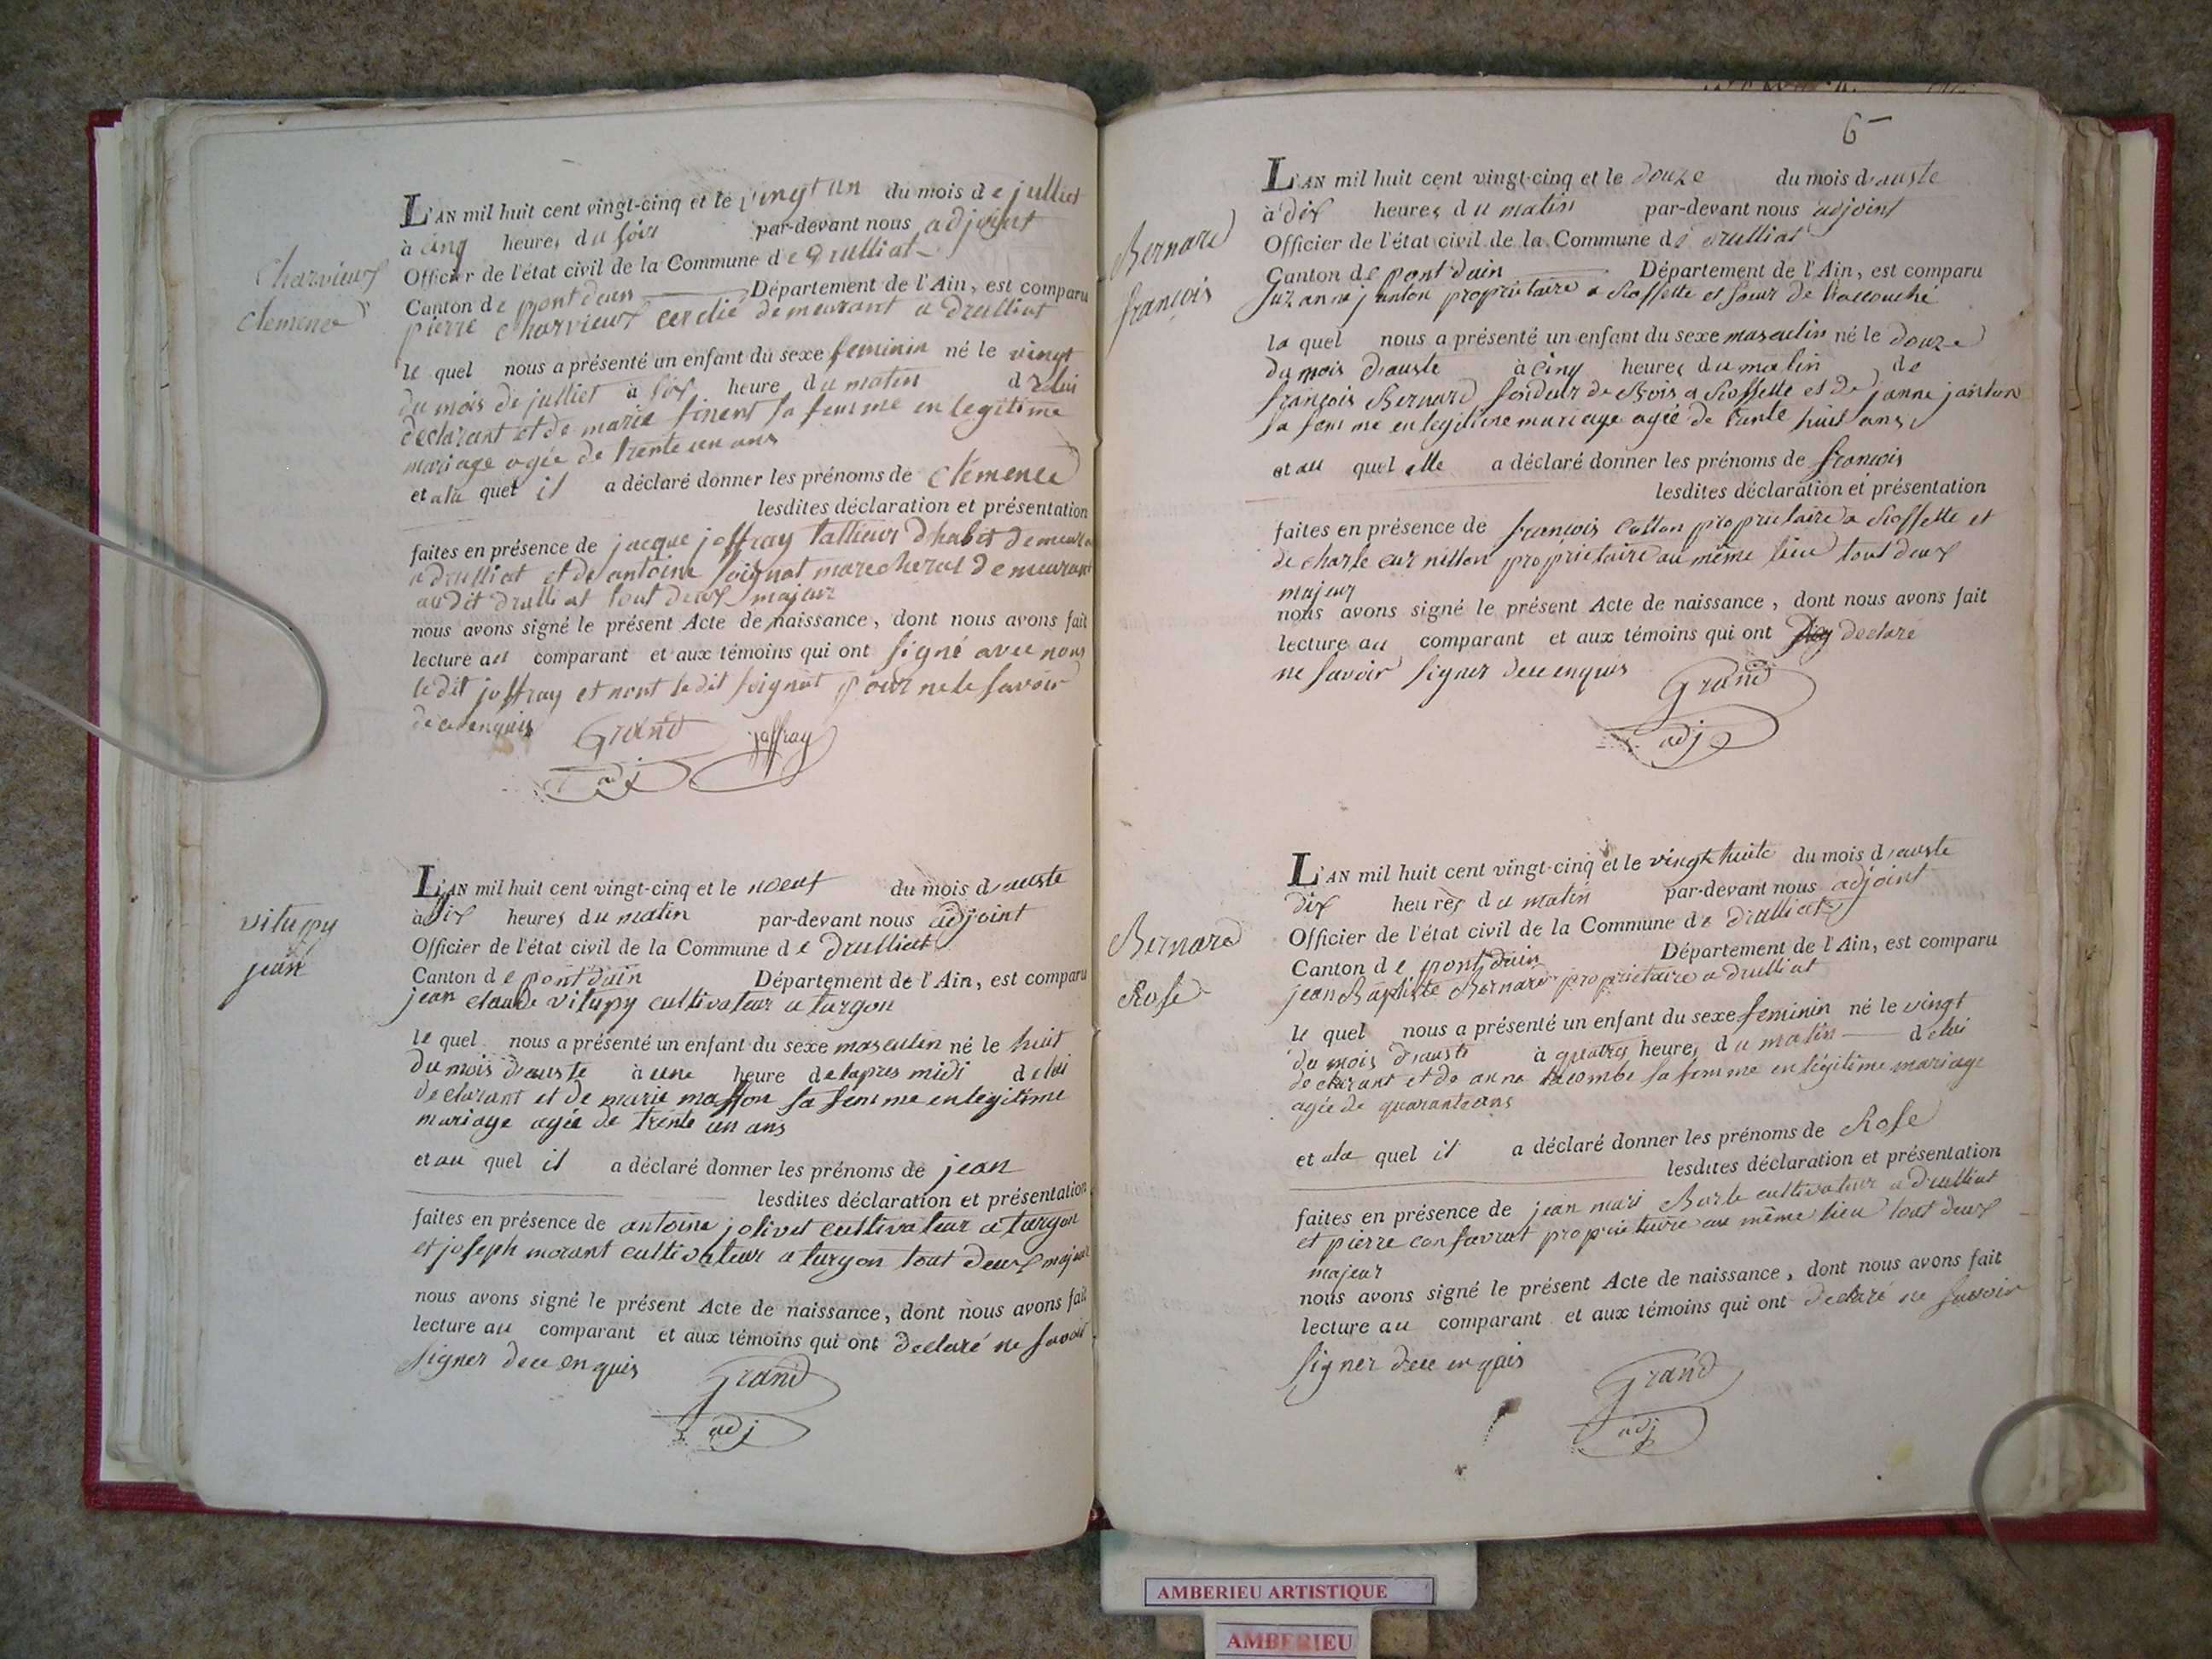 Charvieux
Clemence
L'AN mil huit cent vingt-cinq et le vingt un du mois de julliet
à cinq heures du soir par-devant nous adjoint
Officier de l'état civil de la Commune de Drulliat
Canton de pont dain Département de l'Ain, est comparu
pierre Charvieux demeurant a Drulliat
le quel nous a présenté un enfant du sexe feminin né le vingt
du mois de julliet à six heure du matin de lui
declarant et de marie sa femme en legitime
mariage agée de trente un ans
et ala quel il a déclaré donner les prénoms de Clémence
lesdites déclaration et présentation
faites en présence de jacque joffray tallieur dhabit
a drulliat et de antoine soignat marecheral demeurant
audit drulliat tout deux majeur
nous avons signé le présent Acte de naissance, dont nous avons fait
lecture au comparant et aux témoins qui ont signé avec nous
ledit joffray et nont ledit soignat pour ne le savoir
de ce enquis Grand joffray
adj
vitupy
jean
L'AN mil huit cent vingt-cinq et le noeuf du mois d'auste
à dix heures du matin par-devant nous adjoint
Officier de l'état civil de la Commune de Drulliat
Canton de pont dain Département de l'Ain, est comparu
jean claude vitupy cultivateur a turgon
le quel nous a présenté un enfant du sexe masculin né le huit
du mois d'auste à une heure de lapres midi de lui
declarant et de marie masson sa femme en legitime
mariage agée de trente un ans
et au quel il a déclaré donner les prénoms de jean
lesdites déclaration et présentation
faites en présence de antoine jolivet cultivateur a turgon
et joseph morant cultivateur a turgon tout deux majeur
nous avons signé le présent Acte de naissance, dont nous avons fait
lecture au comparant et aux témoins qui ont declaré ne savoir
signer dece enquis Grand
adj
6
Bernard
françois
L'AN mil huit cent vingt-cinq et le douze du mois d'auste
à dix heures du matin par-devant nous adjoint
Officier de l'état civil de la Commune de drulliat
Canton de pont dain Département de l'Ain, est comparu
suzanne janton propriétaire a Rossette et soeur de
la quel nous a présenté un enfant du sexe masculin né le douze
du mois d'auste à cinq heures du matin de
françois Bernard fendeur de Bois a Rossette et de janne janton
sa femme en legitime mariage agée de trante huit ans
et au quel elle a déclaré donner les prénoms de françois
lesdites déclaration et présentation
faites en présence de françois propriétaire a Rossette et
de charle propriétaire au même lieu tout deux
majeur
nous avons signé le présent Acte de naissance, dont nous avons fait
lecture au comparant et aux témoins qui ont declaré
ne savoir signer dece enquis Grand
adj
Bernard
Rose
L'AN mil huit cent vingt-cinq et le vingt huite du mois d'auste
dix heures du matin par-devant nous adjoint
Officier de l'état civil de la Commune de drulliat
Canton de pont dain Département de l'Ain, est comparu
jean Baptiste Bernard propriétaire a drulliat
le quel nous a présenté un enfant du sexe feminin né le vingt
du mois d'auste à quatres heures du matin de lui
declarant et de anne lacombe sa femme en légitime mariage
agée de quarante ans
et ala quel il a déclaré donner les prénoms de Rose
lesdites déclaration et présentation
faites en présence de jean mari Borle cultivateur a drulliat
et pierre confavrat propriétaire au même lieu tout deux
majeur
nous avons signé le présent Acte de naissance, dont nous avons fait
lecture au comparant et aux témoins qui ont declaré ne savoir
signer dece enquis Grand
adj
AMBERIEU ARTISTIQUE
AMBERIEU